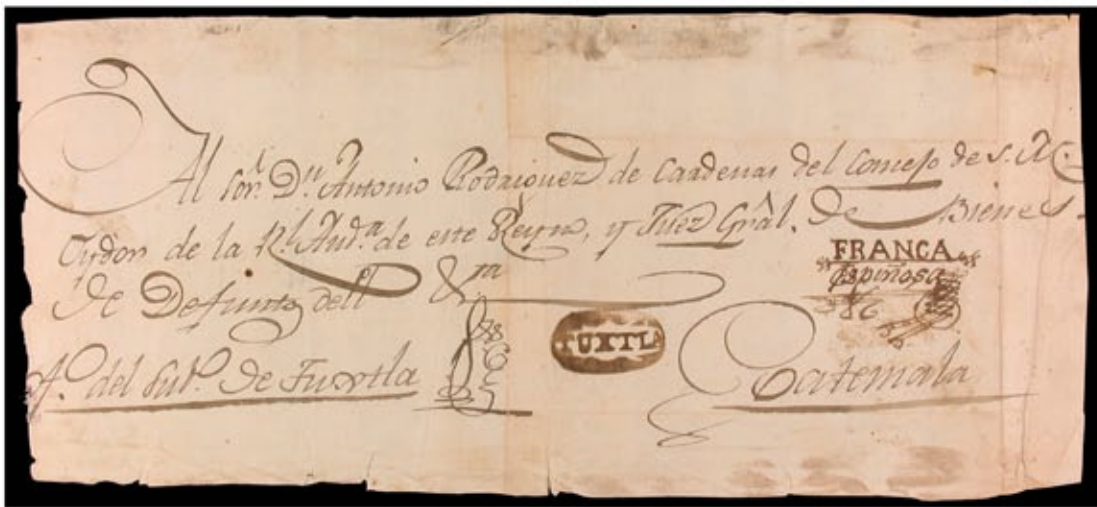 Al Sor. Dn. Antonio Rodriguez de Cardenas del Consejo de S. M.
Oydor de la Rl. Aud.a de este Reyno, y Juez Gral. De Bienes
FRANCA
Espinosa
de Defuntos del
TUXTLA
A.o del Sub.o De Tuxtla
Guatemala